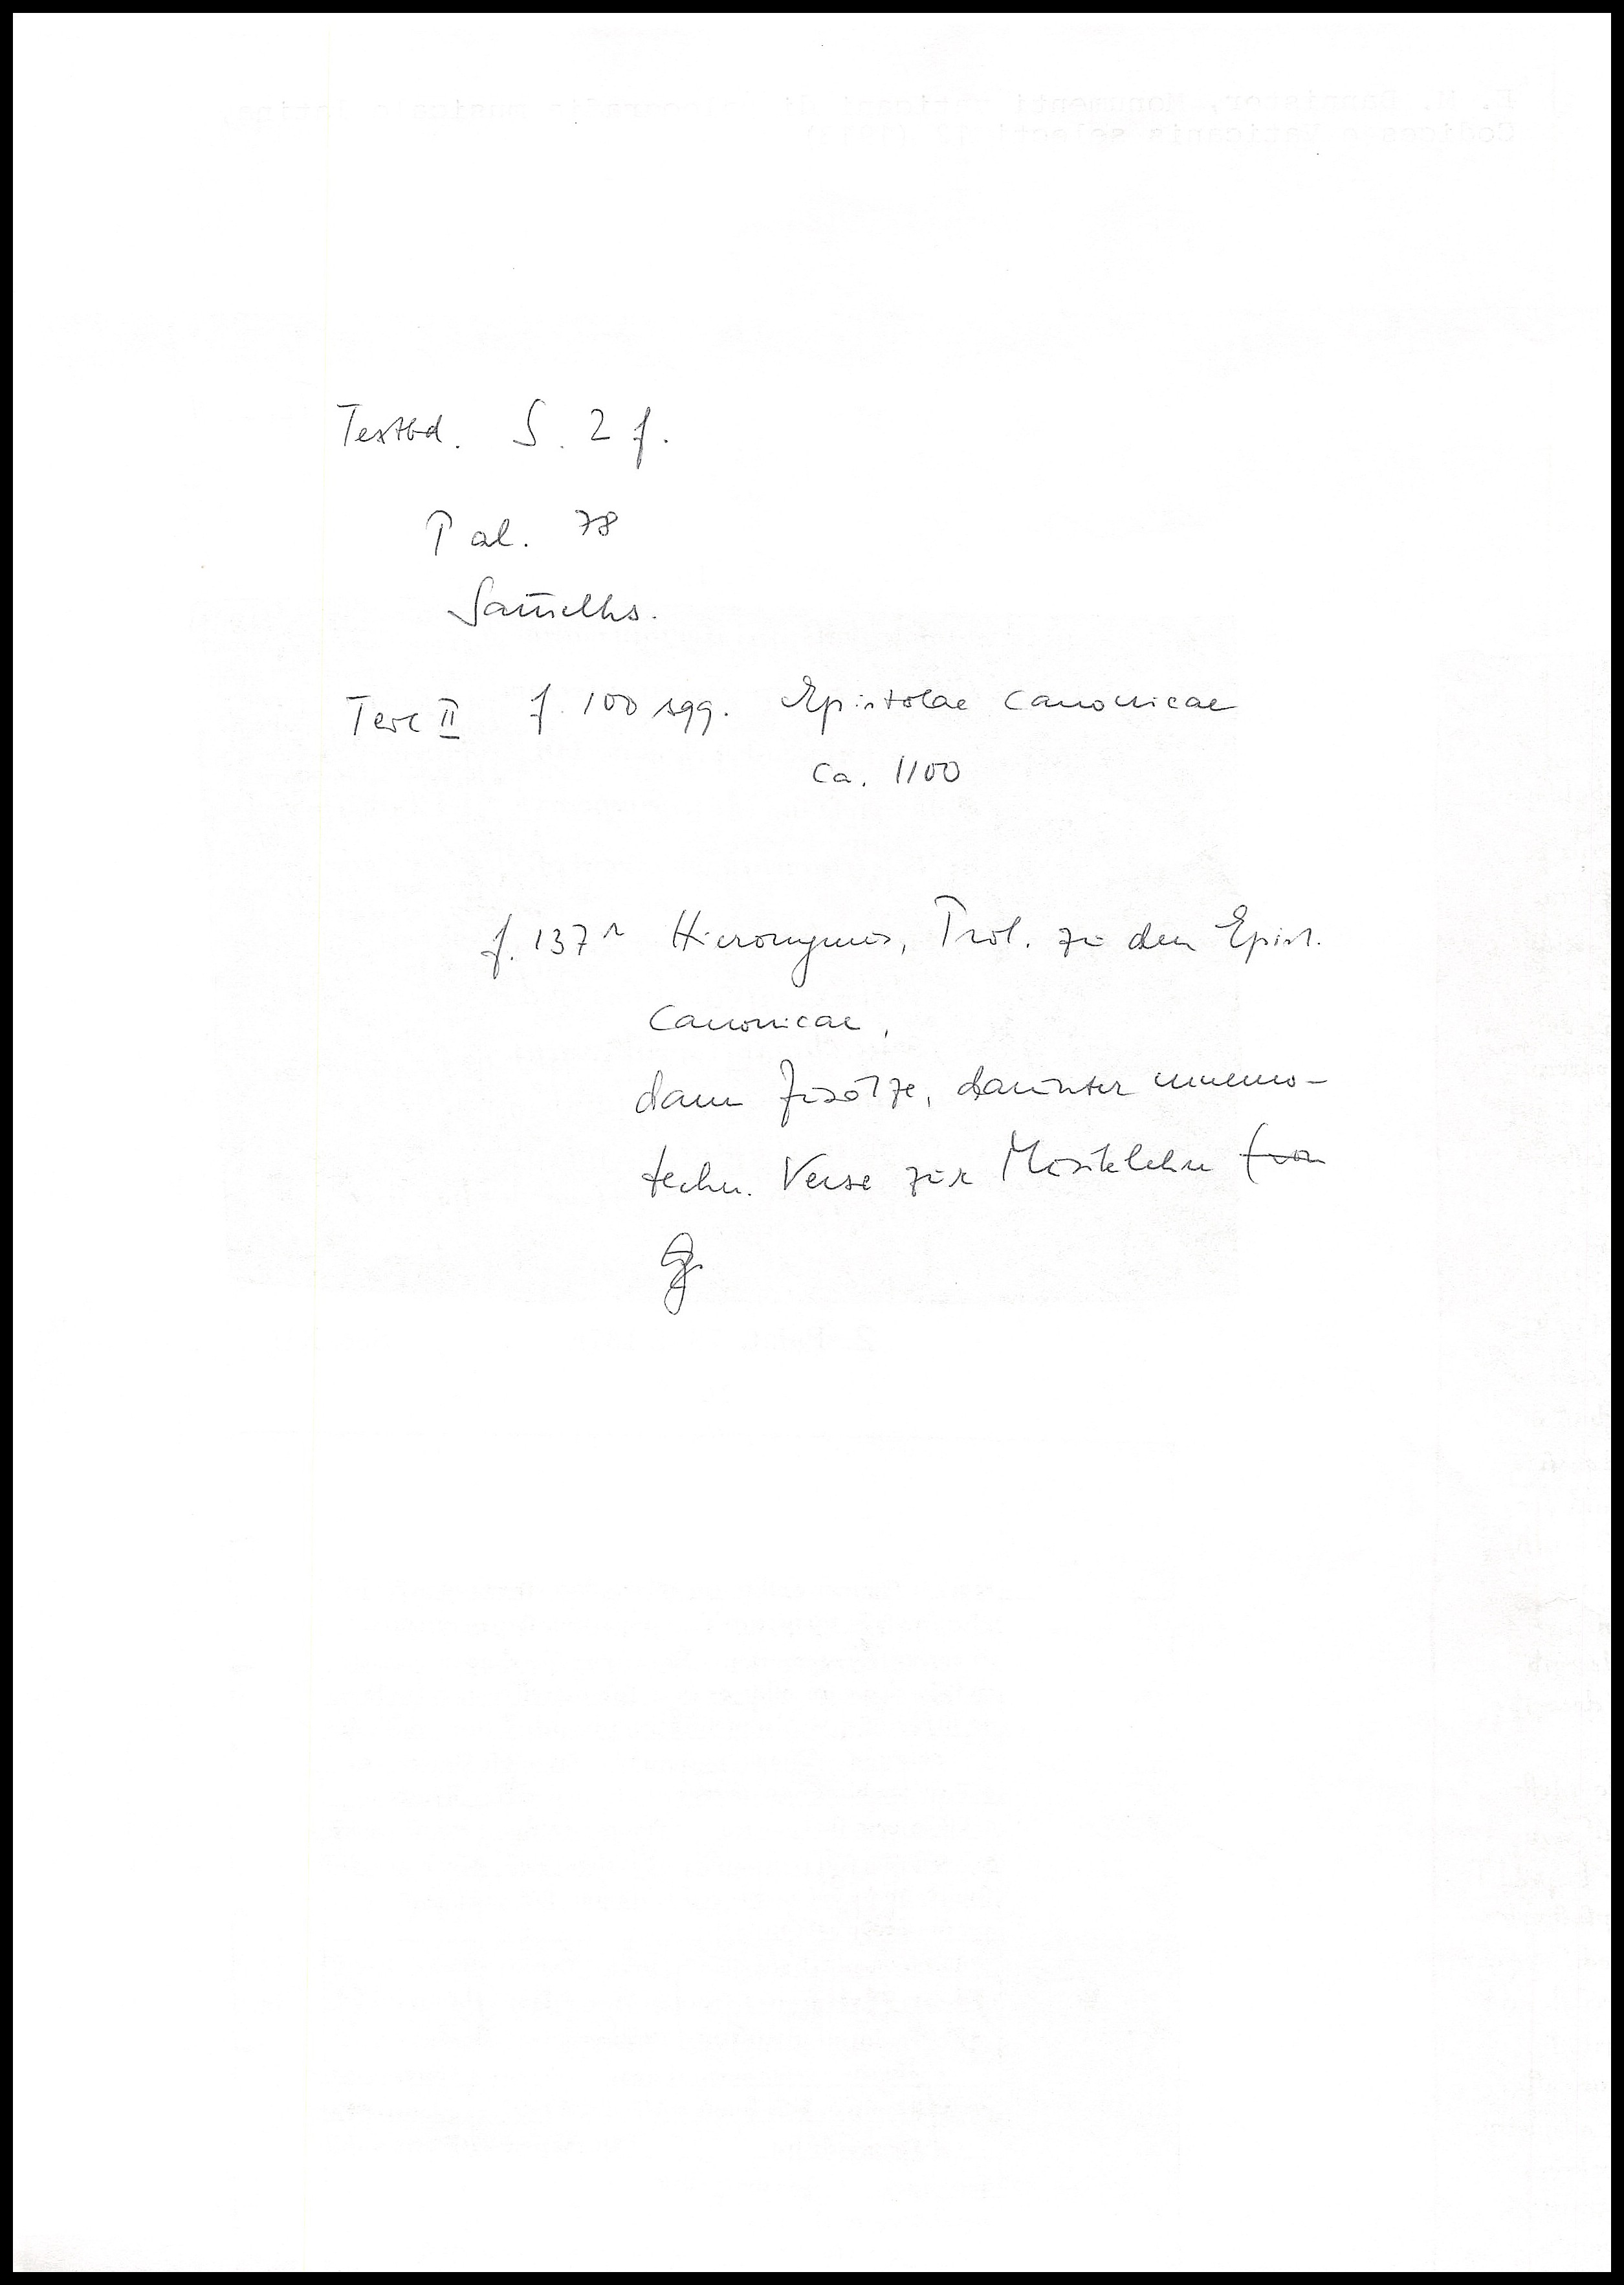 Textbd. S. 2 f.
Pal. 78
Sam̄elhs.
Teil II f. 100 sqq. Epistolae canonicae
ca. 1100
f. 137r Hieronymus, Prol. zu den Epist.
Canonicae,
dann Zusätze, darunter mnemo-
techn. Verse zur Musiklehre (von